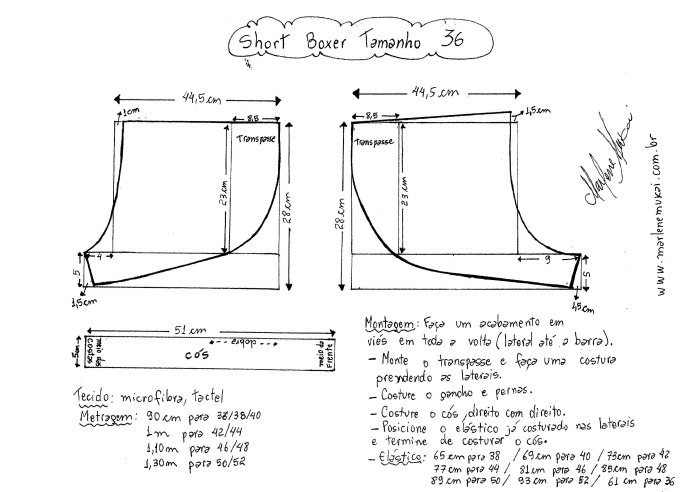 Short Boxer Tamanho 36
44,5 cm
1cm
8,5
Transpasse
23 cm
28 cm
4
5
1,5cm
44,5 cm
1,5cm
8,5
Transpasse
23 cm
28 cm
9
5
1,5cm
Marlene Mukai
www.marlenemukai.com.br
51 cm
5cm
meio das costas
cós
dobra
meio da Frente
Tecido: microfibra, tactel
Metragem: 90 cm para 36/38/40
1 m para 42/44
1,10m para 46/48
1,30m para 50/52
Montagem: Faça um acabamento em
viés em toda a volta (lateral até a barra).
- Monte o transpasse e faça uma costura
prendendo as laterais.
- Costure o gancho e pernas.
- Costure o cós, direito com direito.
- Posicione o elástico já costurado nas laterais
e termine de costurar o cós.
- Elástico: 65 cm para 38 / 69 cm para 40 / 73 cm para 42
77 cm para 44 / 81 cm para 46 / 85 cm para 48
89 cm para 50 / 93 cm para 52 / 61 cm para 36